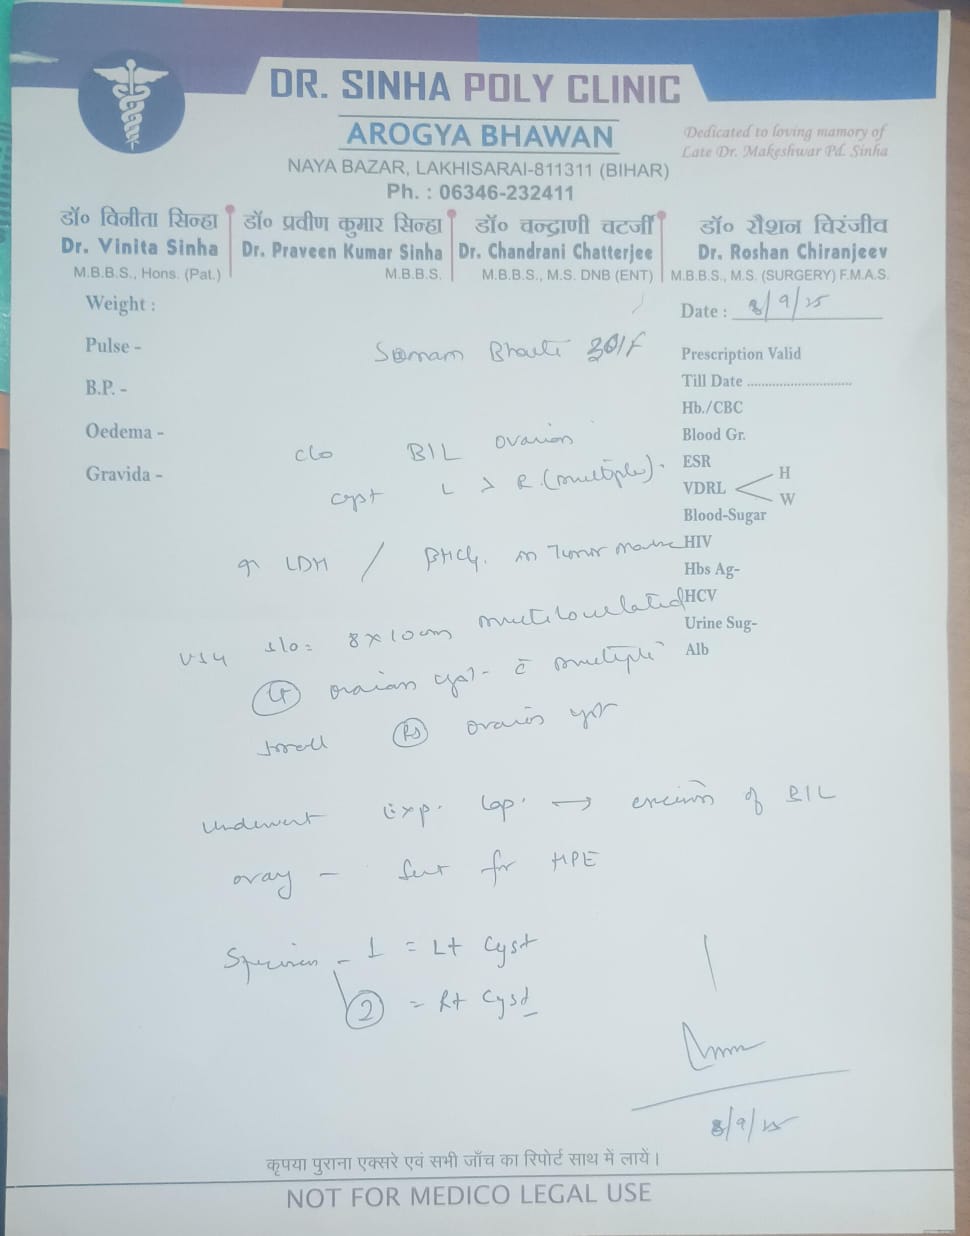 DR. SINHA POLY CLINIC
AROGYA BHAWAN
Dedicated to loving mamory of
Late Dr. Makeshwar Pd. Sinha
NAYA BAZAR, LAKHISARAI-811311 (BIHAR)
Ph. : 06346-232411
डॉ० विनीता सिन्हा
Dr. Vinita Sinha
M.B.B.S., Hons. (Pat.)
डॉ० प्रवीण कुमार सिन्हा
Dr. Praveen Kumar Sinha
M.B.B.S.
डॉ० चन्द्राणी चटर्जी
Dr. Chandrani Chatterjee
M.B.B.S., M.S. DNB (ENT)
डॉ० रौशन चिरंजीव
Dr. Roshan Chiranjeev
M.B.B.S., M.S. (SURGERY) F.M.A.S.
Weight :
Pulse -
B.P. -
Oedema -
Gravida -
Date : 8/9/25
Prescription Valid
Till Date ............................
Hb./CBC
Blood Gr.
ESR
VDRL H W
Blood-Sugar
HIV
Hbs Ag-
HCV
Urine Sug-
Alb
c/o B/L ovarian
cyst L > R (multiple).
LDH / βHCG. Tumor
USG s/o = 8 x 10 cm multiloculated
Lt ovarian cyst - c̄ multiple
small Rt ovarian cyst
Underwent Exp. lap. → excision of B/L
ovary - sent for HPE
Specimen - 1 = Lt Cyst
2 = Rt Cyst
8/9/25
कृपया पुराना एक्सरे एवं सभी जाँच का रिपोर्ट साथ में लायें।
NOT FOR MEDICO LEGAL USE